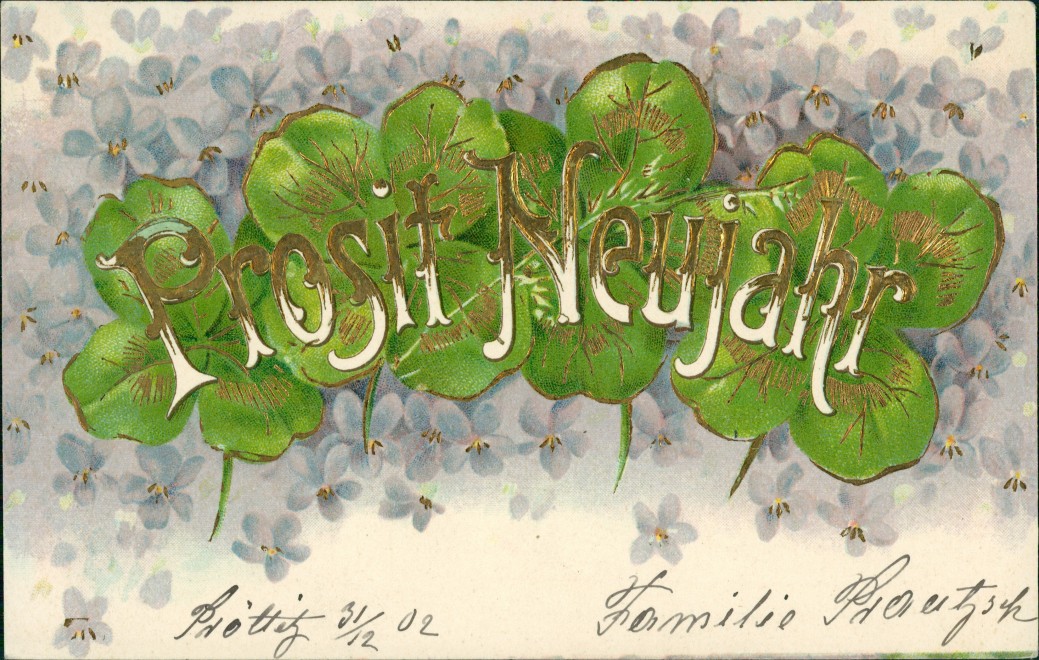 Prosit Neujahr
Pröttitz 31/12 02
Familie Prautzsch